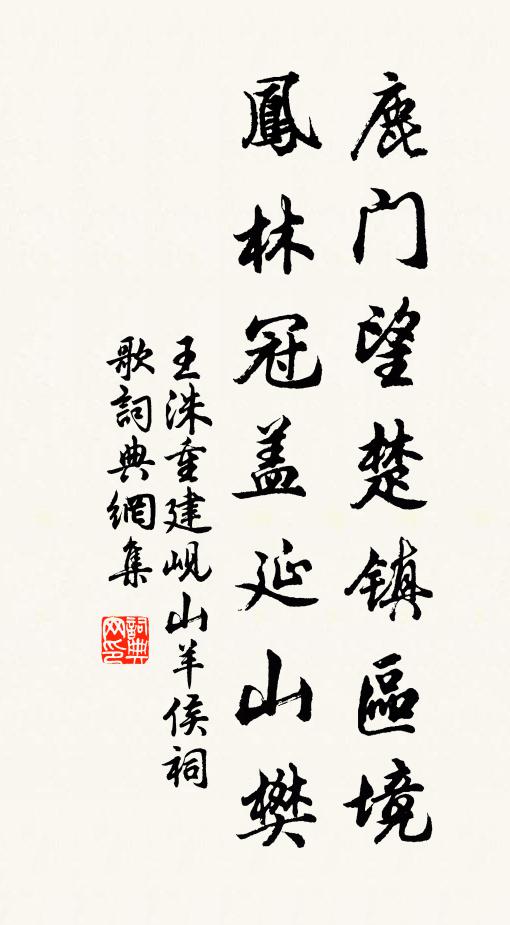 鹿门望楚镇區境
鳳林冠盖延山樊
王洙重建峴山羊侯祠
歌詞典網集
詞典网印